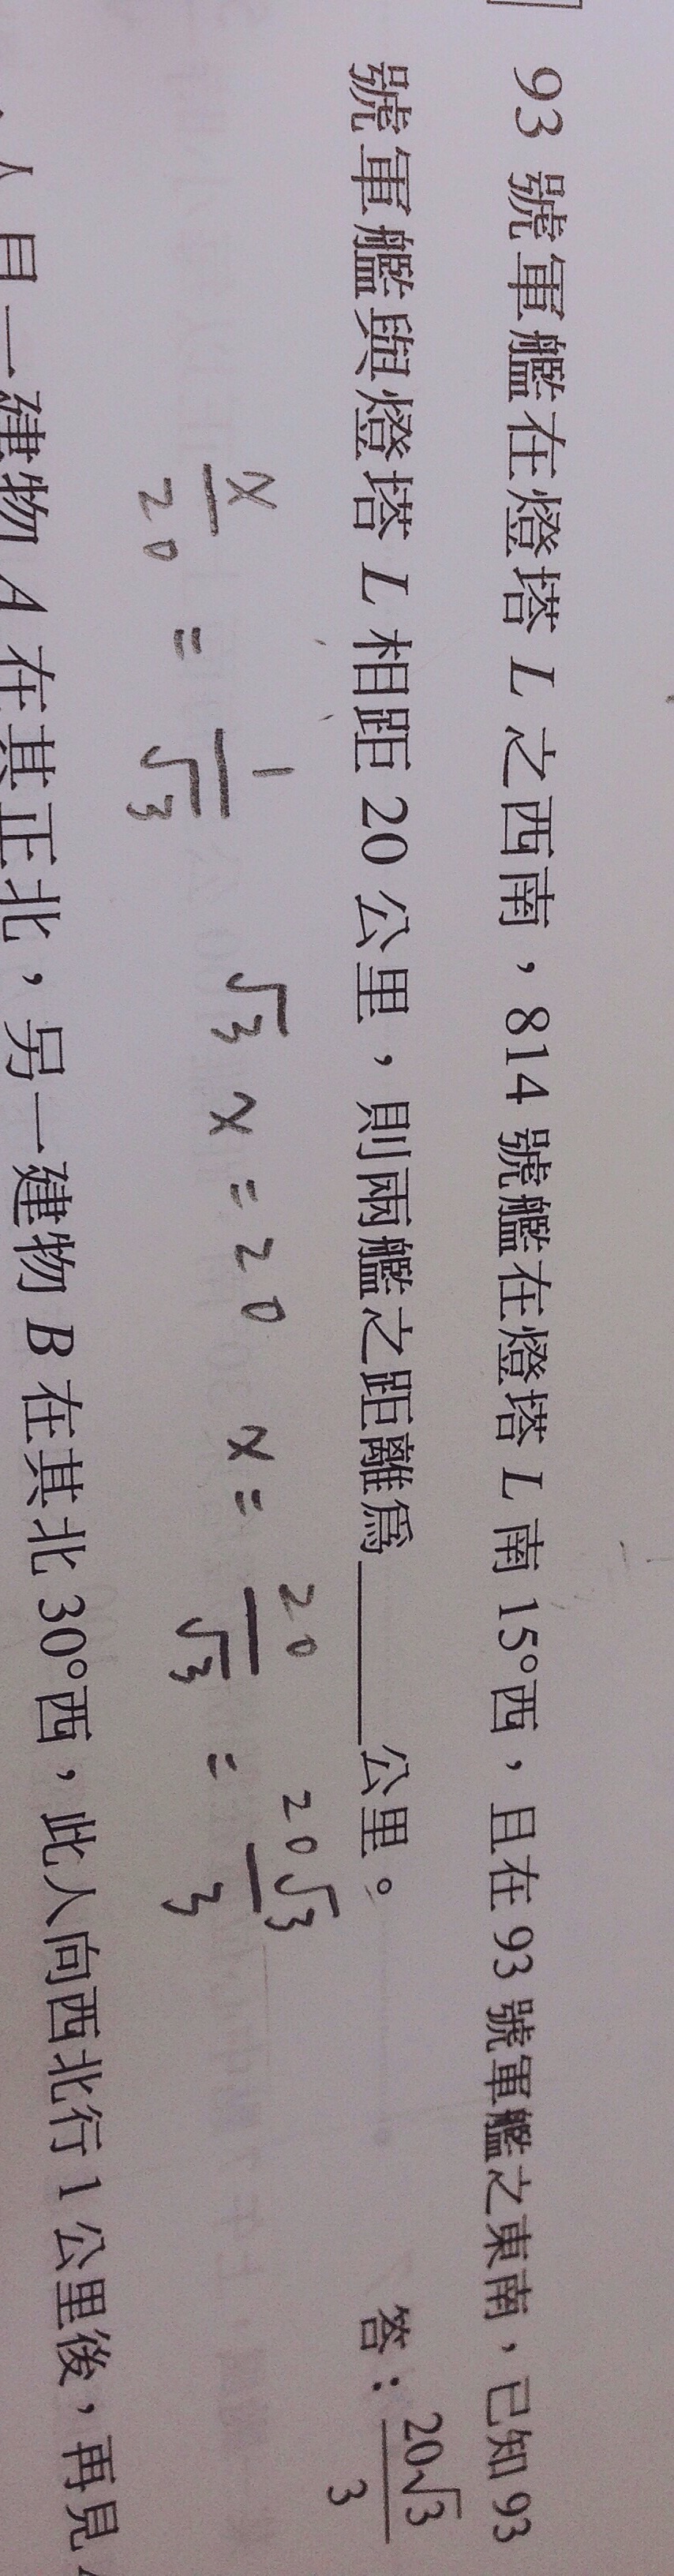 93 號軍艦在燈塔 L 之西南，814 號艦在燈塔 L 南 15°西，且在 93 號軍艦之東南，已知 93
號軍艦與燈塔 L 相距 20 公里，則兩艦之距離為______公里。
答：20√3/3
x/20 = 1/√3  √3 x = 20  x = 20/√3 = 20√3/3
人見一建物 A 在其正北，另一建物 B 在其北 30°西，此人向西北行 1 公里後，再見